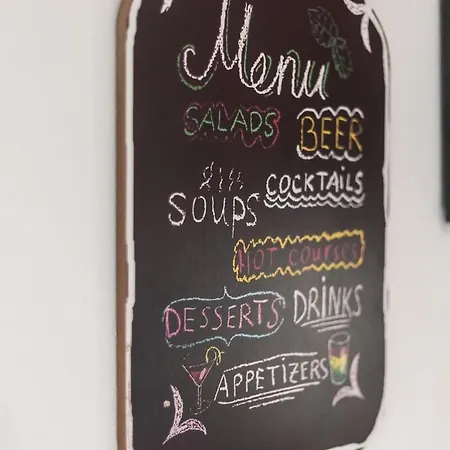 Menu
SALADS
BEER
COCKTAILS
SOUPS
HOT COURSES
DESSERTS
DRINKS
APPETIZERS